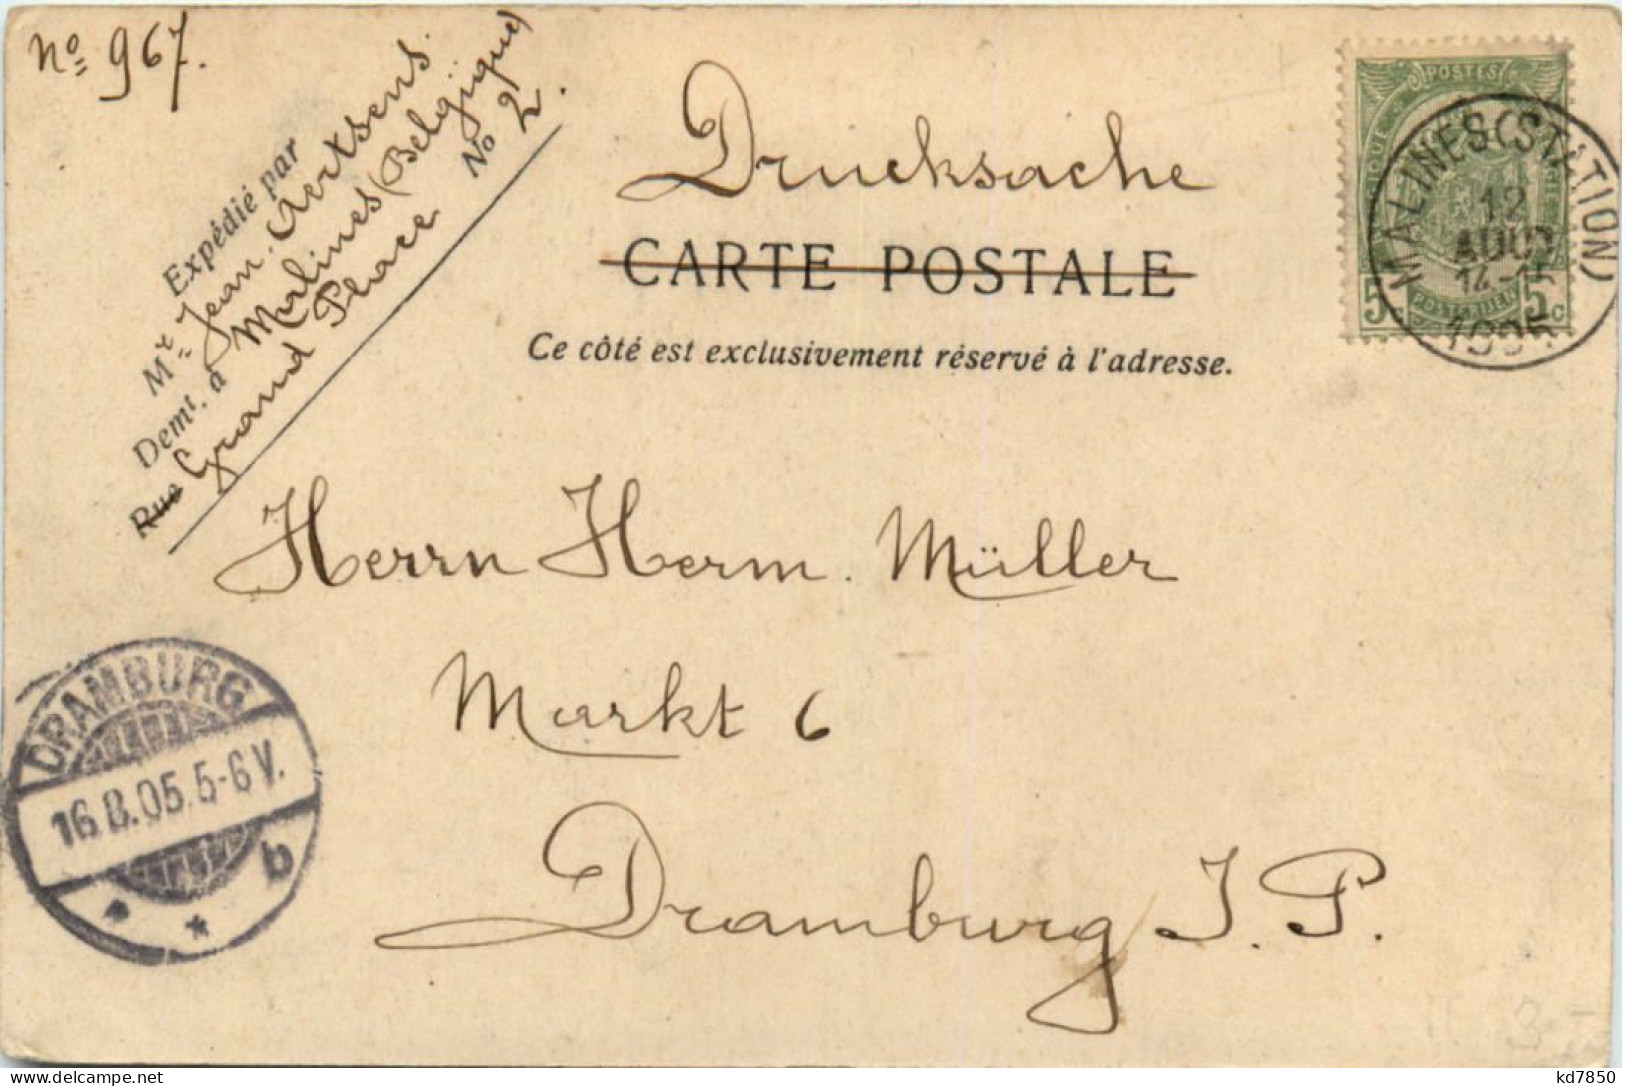 Nº 967.
Expédié par
Mr Jean Aertsens.
Demt. à Malines (Belgique)
Rue Grand Place No 2.
Drucksache
CARTE POSTALE
Ce côté est exclusivement réservé à l'adresse.
POSTES
5c 5c
MALINES (STATION)
12
AOUT
14-15
1905
Herrn Herm. Müller
Markt 6
Dramburg J. P.
DRAMBURG
16.8.05.5-6V.
* * b
kd7850